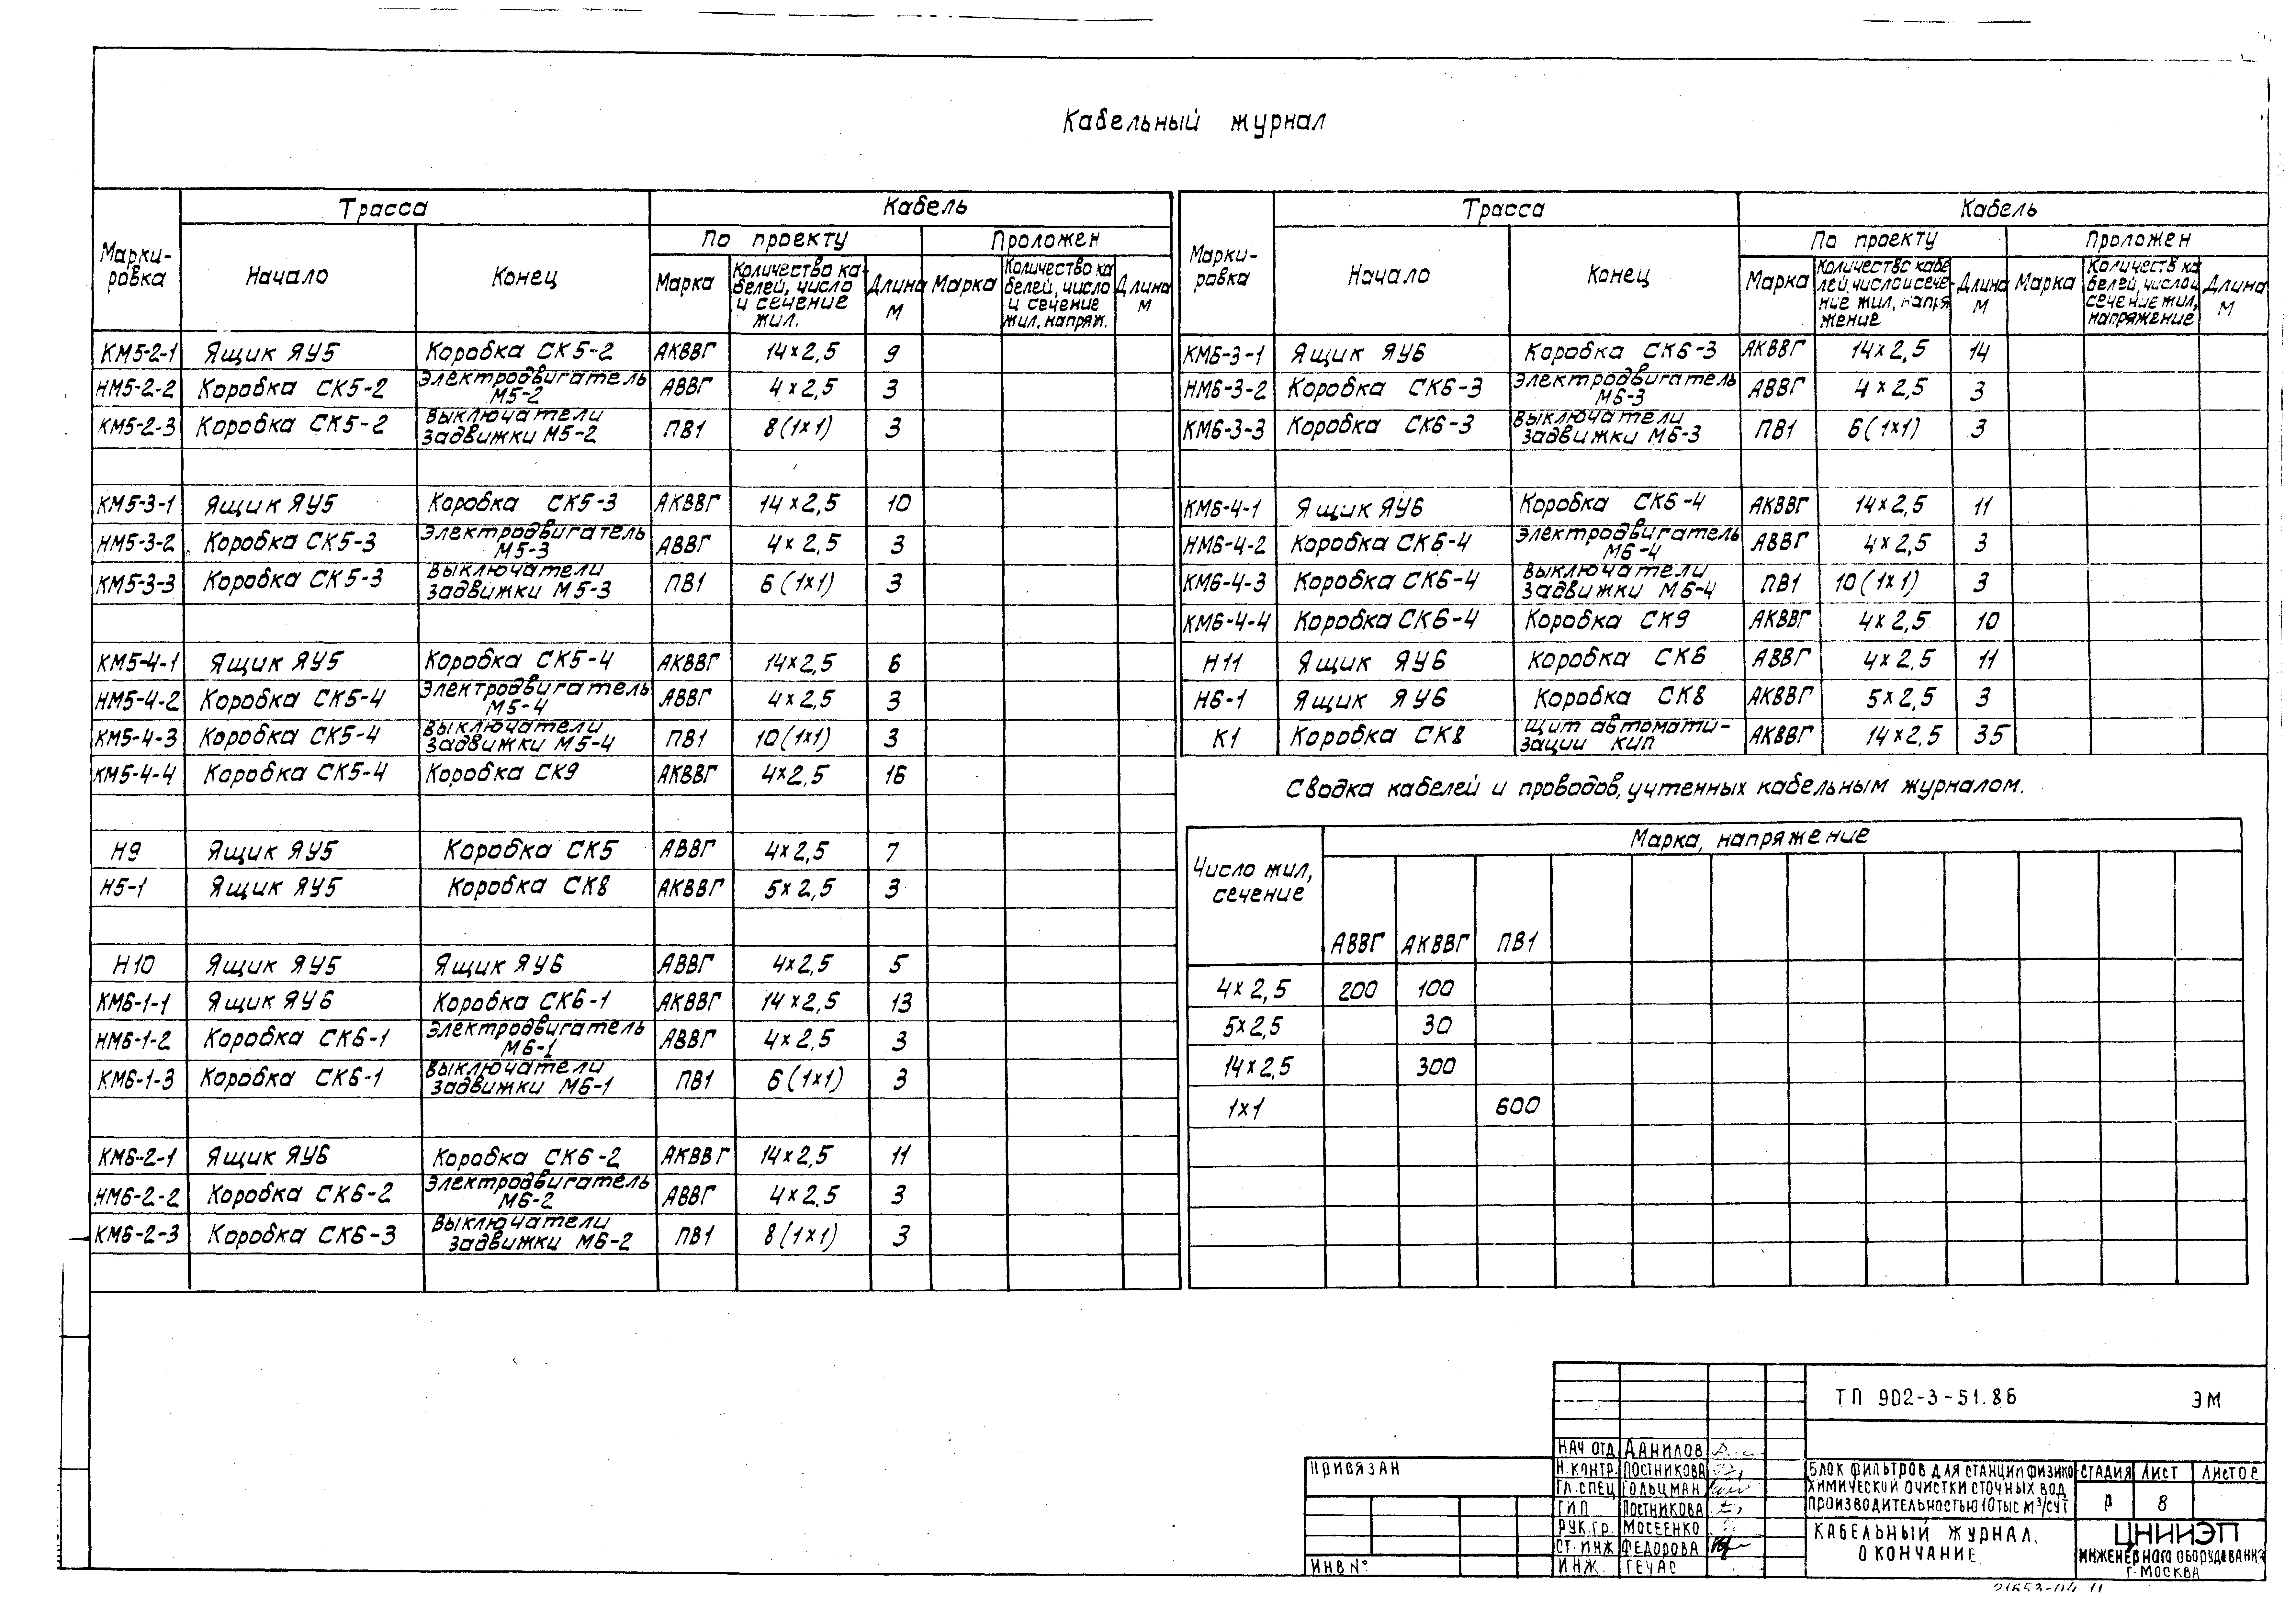 Кабельный журнал
Марки-
ровка
Трасса
Кабель
Начало
Конец
По проекту
Проложен
Марка
Количество ка-
белей, число
и сечение
жил.
Длина
м
Марка
Количество ка
белей, число
и сечение
жил, напряж.
Длина
м
КМ5-2-1 Ящик ЯУ5 Коробка СК5-2 АКВВГ 14×2,5 9
НМ5-2-2 Коробка СК5-2 Электродвигатель М5-2 АВВГ 4×2,5 3
КМ5-2-3 Коробка СК5-2 Выключатели задвижки М5-2 ПВ1 8(1×1) 3
КМ5-3-1 Ящик ЯУ5 Коробка СК5-3 АКВВГ 14×2,5 10
НМ5-3-2 Коробка СК5-3 Электродвигатель М5-3 АВВГ 4×2,5 3
КМ5-3-3 Коробка СК5-3 Выключатели задвижки М5-3 ПВ1 6(1×1) 3
КМ5-4-1 Ящик ЯУ5 Коробка СК5-4 АКВВГ 14×2,5 6
НМ5-4-2 Коробка СК5-4 Электродвигатель М5-4 АВВГ 4×2,5 3
КМ5-4-3 Коробка СК5-4 Выключатели задвижки М5-4 ПВ1 10(1×1) 3
КМ5-4-4 Коробка СК5-4 Коробка СК9 АКВВГ 4×2,5 16
Н9 Ящик ЯУ5 Коробка СК5 АВВГ 4×2,5 7
Н5-1 Ящик ЯУ5 Коробка СК8 АКВВГ 5×2,5 3
Н10 Ящик ЯУ5 Ящик ЯУ6 АВВГ 4×2,5 5
КМ6-1-1 Ящик ЯУ6 Коробка СК6-1 АКВВГ 14×2,5 13
НМ6-1-2 Коробка СК6-1 Электродвигатель М6-1 АВВГ 4×2,5 3
КМ6-1-3 Коробка СК6-1 Выключатели задвижки М6-1 ПВ1 6(1×1) 3
КМ6-2-1 Ящик ЯУ6 Коробка СК6-2 АКВВГ 14×2,5 11
НМ6-2-2 Коробка СК6-2 Электродвигатель М6-2 АВВГ 4×2,5 3
КМ6-2-3 Коробка СК6-3 Выключатели задвижки М6-2 ПВ1 8(1×1) 3
Марки-
ровка
Трасса
Кабель
Начало
Конец
По проекту
Проложен
Марка
Количество кабе
лей, число и сече-
ние жил, напря
жение
Длина
м
Марка
Количеств ка
белей, число и
сечение жил,
напряжение
Длина
м
КМ6-3-1 Ящик ЯУ6 Коробка СК6-3 АКВВГ 14×2,5 14
НМ6-3-2 Коробка СК6-3 Электродвигатель М6-3 АВВГ 4×2,5 3
КМ6-3-3 Коробка СК6-3 Выключатели задвижки М6-3 ПВ1 6(1×1) 3
КМ6-4-1 Ящик ЯУ6 Коробка СК6-4 АКВВГ 14×2,5 11
НМ6-4-2 Коробка СК6-4 Электродвигатель М6-4 АВВГ 4×2,5 3
КМ6-4-3 Коробка СК6-4 Выключатели задвижки М6-4 ПВ1 10(1×1) 3
КМ6-4-4 Коробка СК6-4 Коробка СК9 АКВВГ 4×2,5 10
Н11 Ящик ЯУ6 Коробка СК6 АВВГ 4×2,5 11
Н6-1 Ящик ЯУ6 Коробка СК8 АКВВГ 5×2,5 3
К1 Коробка СК8 Щит автомати-зации КИП АКВВГ 14×2,5 35
Сводка кабелей и проводов, учтенных кабельным журналом.
Число жил,
сечение
Марка, напряжение
АВВГ АКВВГ ПВ1
4×2,5 200 100
5×2,5 30
14×2,5 300
1×1 600
ТП 902-3-51.86 ЭМ
Привязан
ИНВ №
НАЧ. ОТД ДАНИЛОВ
Н.КОНТР. ПОСТНИКОВА
ГЛ.СПЕЦ ГОЛЬЦМАН
ГИП ПОСТНИКОВА
РУК.ГР. МОСЕЕНКО
СТ.ИНЖ ФЕДОРОВА
ИНЖ. ГЕЧАС
БЛОК ФИЛЬТРОВ ДЛЯ СТАНЦИИ ФИЗИКО-
ХИМИЧЕСКОЙ ОЧИСТКИ СТОЧНЫХ ВОД
ПРОИЗВОДИТЕЛЬНОСТЬЮ 10 ТЫС М³/СУТ
СТАДИЯ ЛИСТ ЛИСТОВ
Р 8
КАБЕЛЬНЫЙ ЖУРНАЛ.
ОКОНЧАНИЕ.
ЦНИИЭП
ИНЖЕНЕРНОГО ОБОРУДОВАНИЯ
Г. МОСКВА
21653-04 11